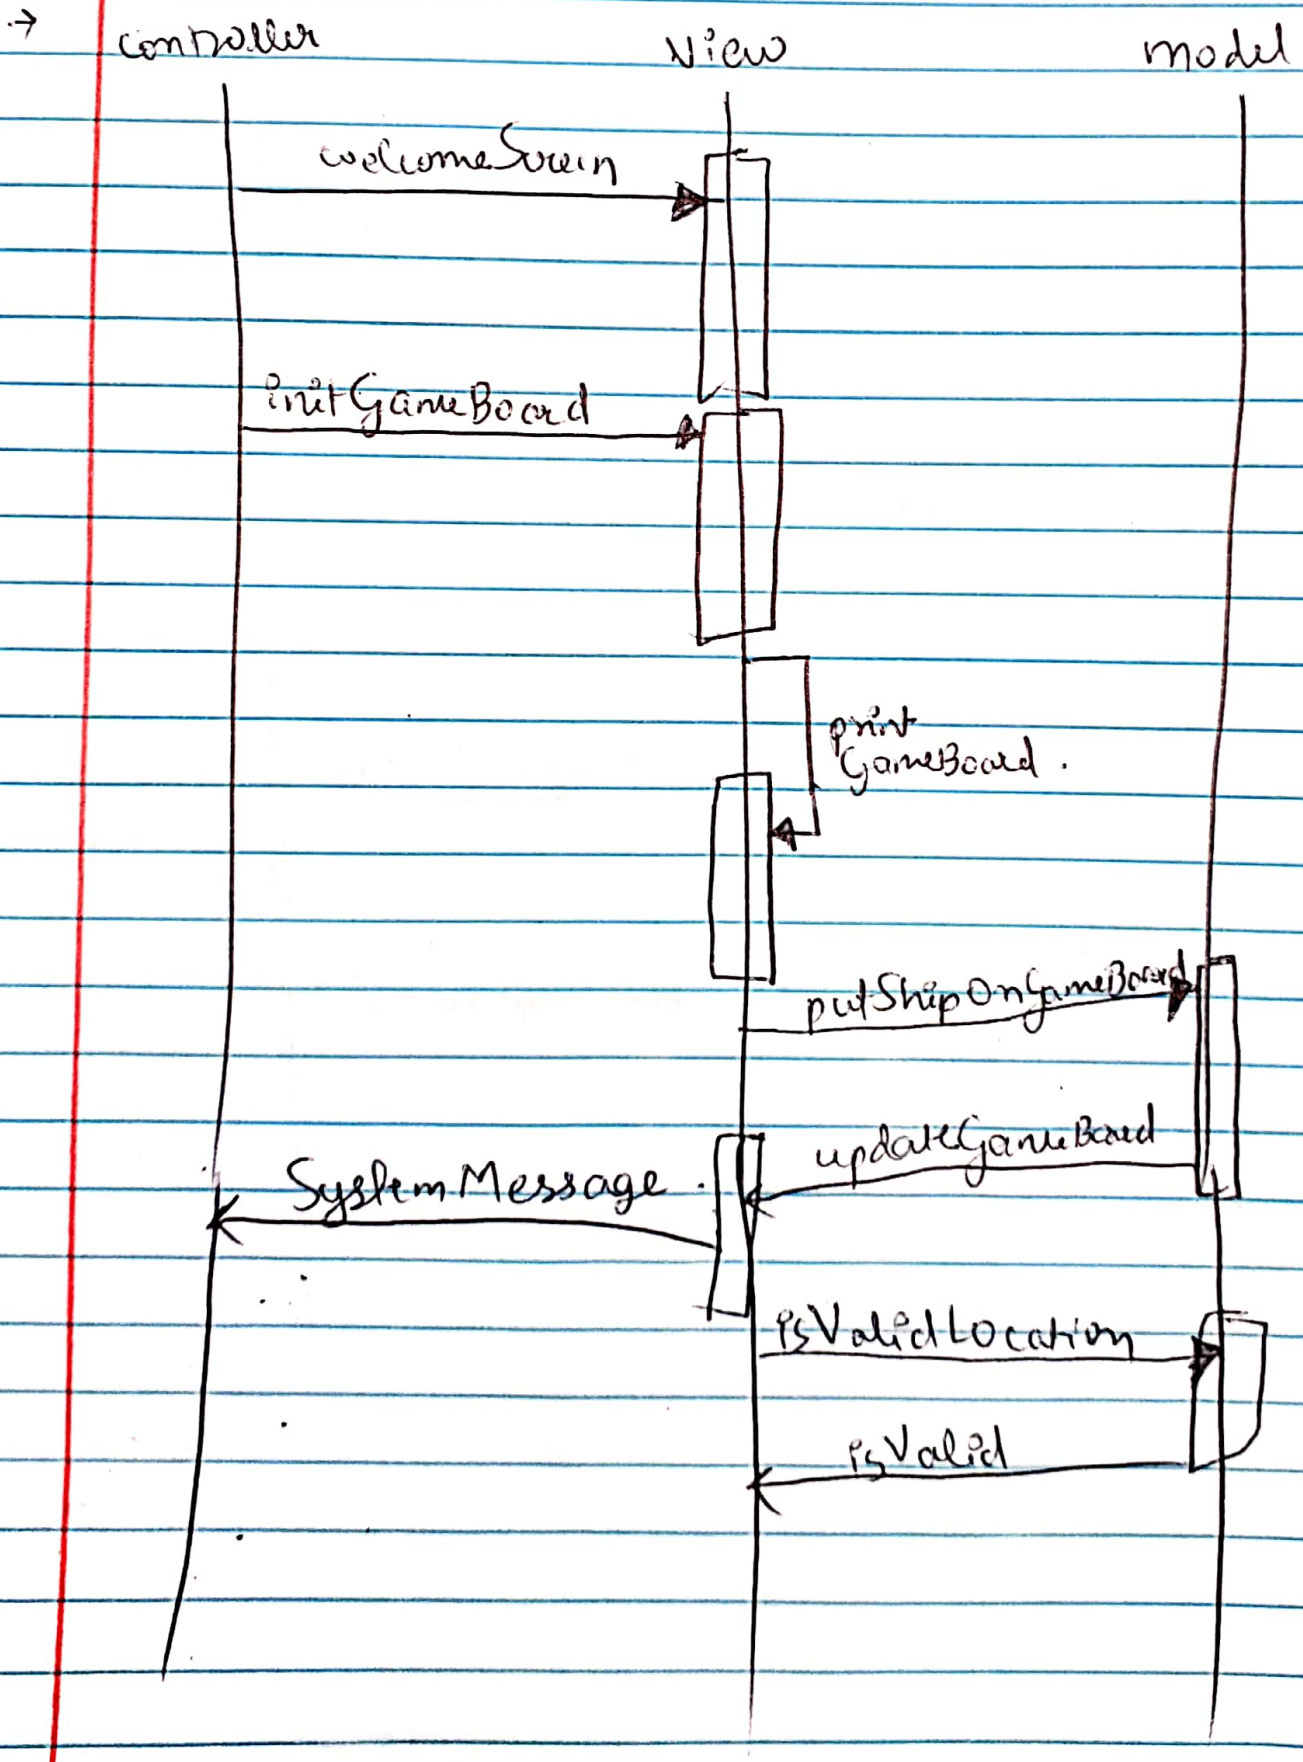 controller
view
model
welcomeScreen
initGameBoard
print
GameBoard.
putShipOnGameBoard
updateGameBoard
SystemMessage.
isValidLocation
isValid